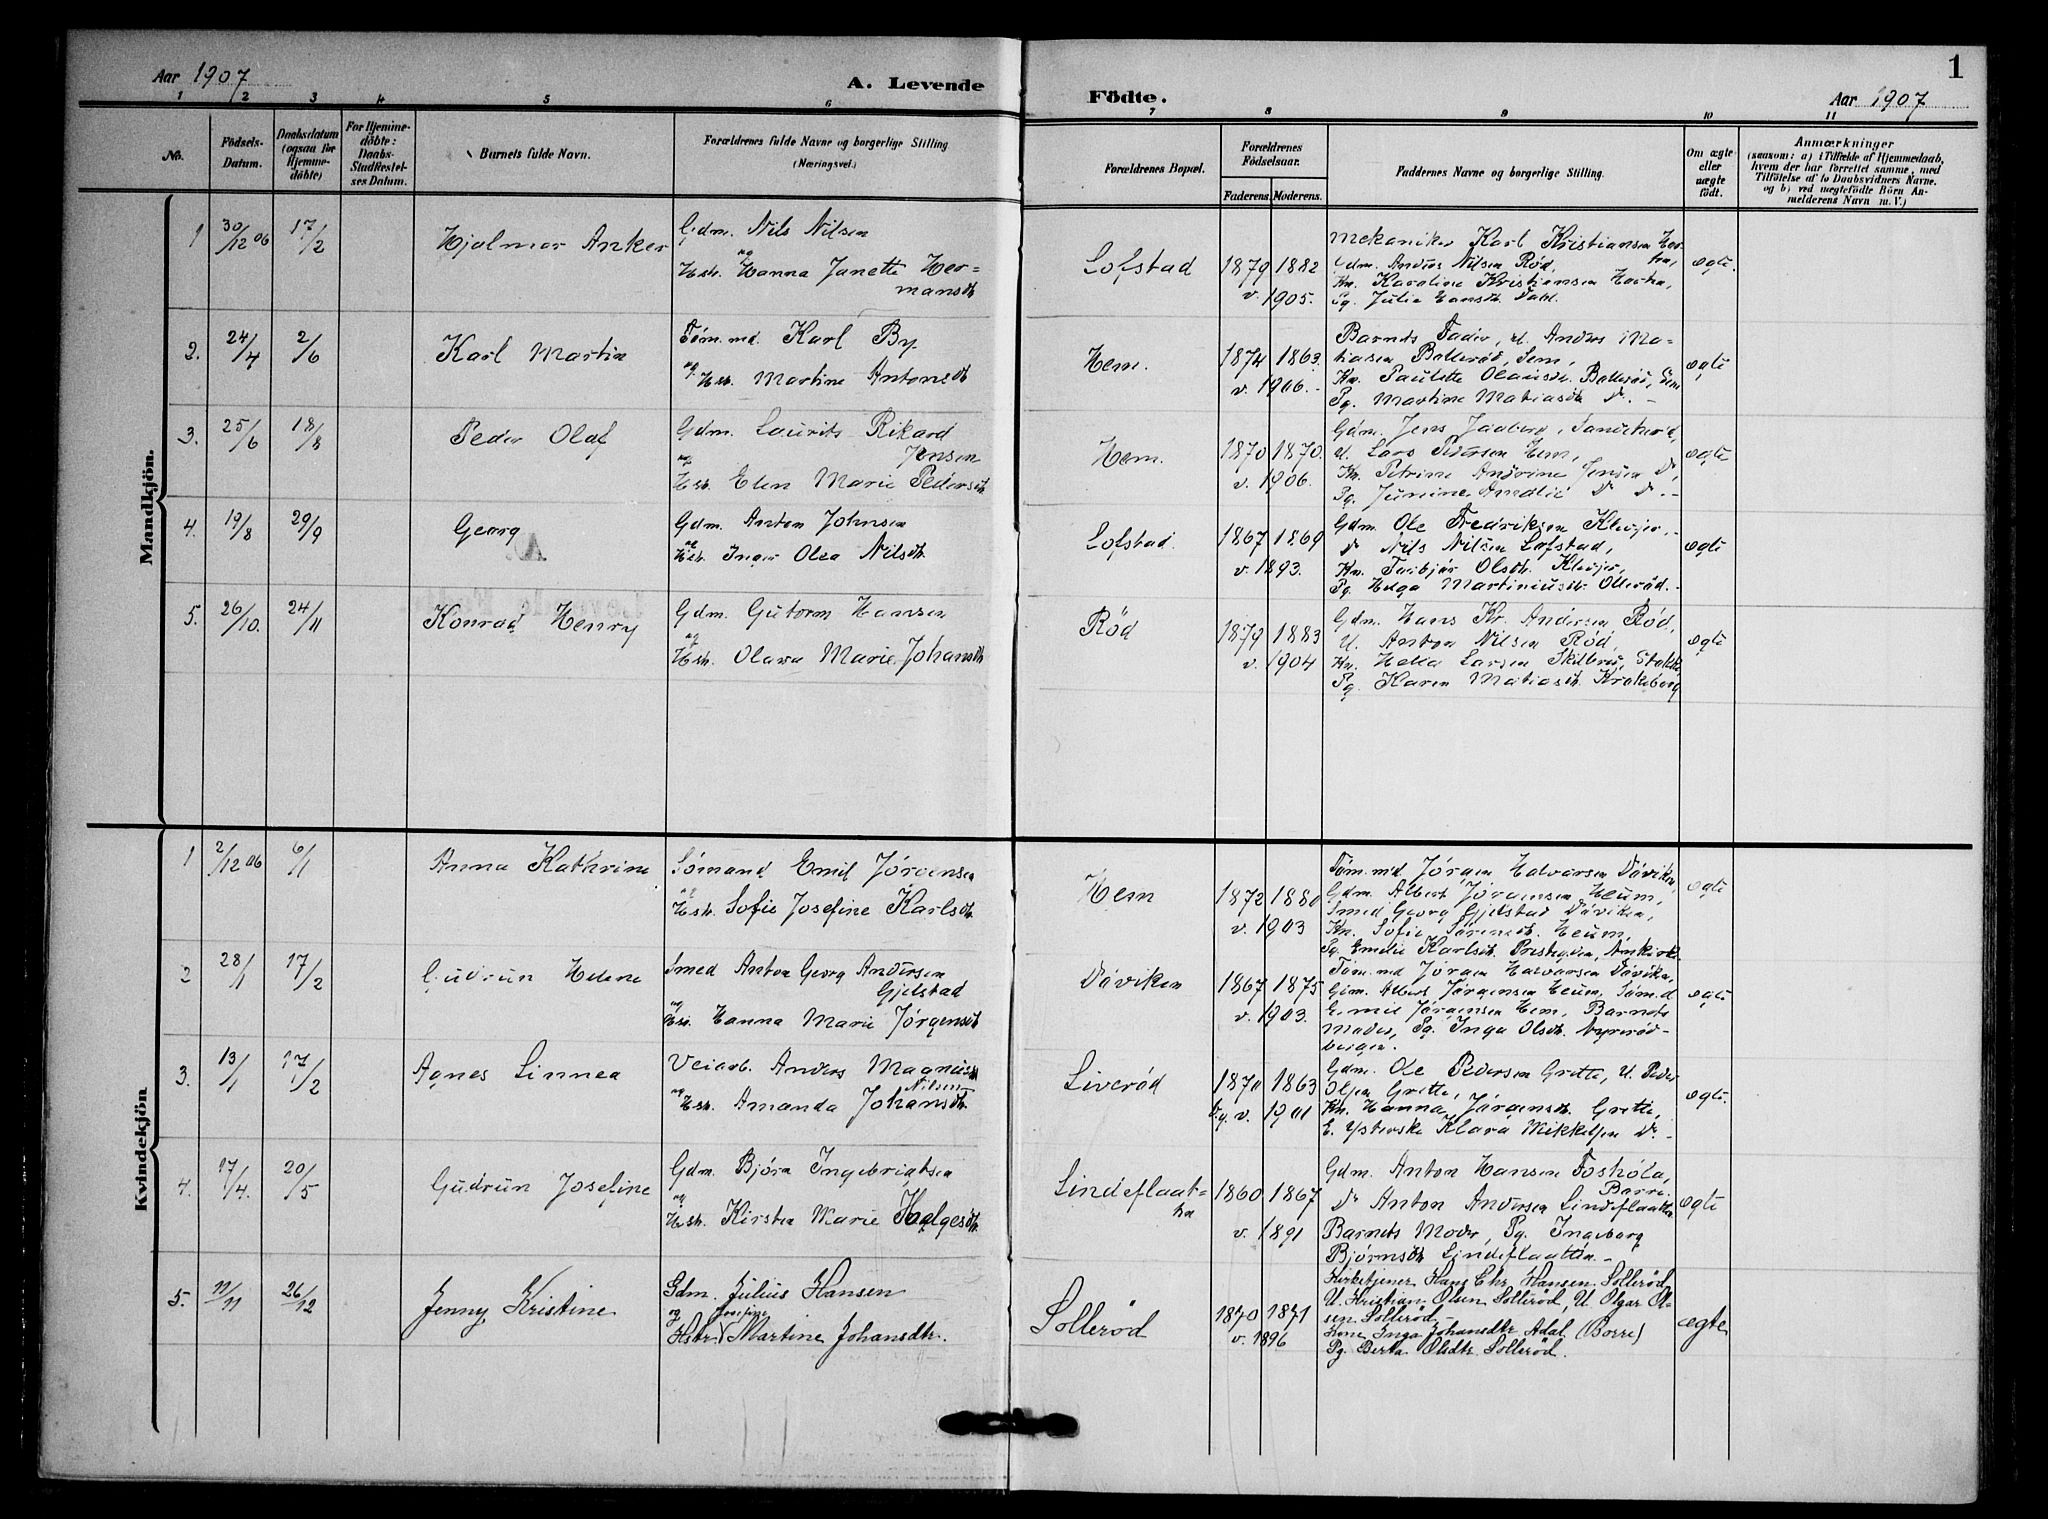 Aar 1907
A. Levende
Födte.
Aar 1907
1
1 2 3 4 5 6 7 8 9 10 11
No.
Födsels-
Datum.
Daabsdatum
(ogsaa for
Hjemme-
døbte)
For Hjemme-
døbte:
Daabs-
Stadfæstel-
ses Datum.
Barnets fulde Navn.
Forældrenes fulde Navne og borgerlige Stilling
(Næringsvei.)
Forældrenes Bopæl.
Forældrenes
Födselsaar.
Faderens. Moderens.
Faddernes Navne og borgerlige Stilling.
Om ægte
eller
uægte
født.
Anmærkninger
(saasom: a) i Tilfælde af Hjemmedaab,
hvem der har forrettet samme, med
Tilföielse af to Daabsvidners Navne,
og b) ved uægtefödte Börn An-
melderens Navn m. V.)
Mandkjön.
1 30/12 06 17/2 Hjalmar Anker
Gdm. Nils Nilsen
og
Hstr. Hanna Janette Her-
mansdtr
Lofstad
1879 1882
v. 1905.
Mekaniker Karl Kristiansen
Gdm. Anders Nilsen Rød,
Kn. Karoline Kristiansen
Pg. Julie Hansdtr. Dahl.
ægte.
2. 24/4 2/6 Karl Martin
Tøm.md. Karl By
og Hstr. Martine Antonsdtr
Hem.
1874 1863.
v. 1906.
Barnets Fader, U. Anders Ma-
tiasen Bollerød, Sem,
Kn. Paulette Olausdtr. Bollerød, Sem
Pg. Martine Matiasdtr Do. -
ægte
3. 25/6 18/8 Peder Olaf
Gdm. Laurits Rikard
Jensen
og
Hstr. Elen Marie Pedersdtr.
Hem.
1870 1870.
v. 1906.
Gdm. Jens Jaaberg, Sandeherred,
U. Lars Pedersen Hem,
Kn. Petrine Andrine Jensen Do,
Pg. Jensine Amalie Do Do. -
ægte
4. 19/8 29/9 Georg
Gdm. Anton Johnsen
og
Hstr. Inger Olea Nilsdtr.
Lofstad.
1867 1869
v. 1893.
Gdm. Ole Fredriksen Klevjer,
Do Nils Nilsen Lofstad,
Kn. Torbjør Olsdtr. Klevjer,
Pg. Helga Martiniusdtr. Ollerød. -
ægte
5. 26/10. 24/11 Konrad Henry
Gdm. Gutorm Hansen
og
Hstr. Olava Marie Johansdtr
Rød
1879 1883
v. 1904
Gdm. Hans Kr. Andersen Rød,
U. Anton Nilsen Rød,
Kn. Helle Larsen Skilbred, Stokke
Pg. Karen Matiasdtr. Krakeborg
ægte
Kvindekjön
1 2/12 06 6/1 Anna Kathrine
Sømand Emil Jørgensen
og
Hstr. Sofie Josefine Karlsdtr.
Hem
1872 1880
v. 1903
Tøm.md Jørgen Halvorsen Døviken,
Gdm. Albert Jørgensen Heum,
Smed Georg Gjelstad Døviken,
Kn. Sofie Sørensdtr. Heum,
Pg. Emelie Karlsdtr. Prestegden, Ankirk.
ægte
2 28/1 17/2 Gudrun Helene
Smed Anton Georg Andersen
Gjelstad
og
Hstr. Hanna Marie Jørgensdtr
Døviken
1867 1875
v. 1903.
Tøm.md Jørgen Halvorsen Døviken,
Gdm. Albert Jørgensen Heum, Søm.d
Emil Jørgensen Hem, Barnets
Moder, Pg. Inga Olsdtr. Nyrerød-
bergen.
ægte
3. 13/1 17/2 Agnes Linnea
Veiarb. Anders Magnus
Nilsen
og Hstr. Amanda Johansdtr.
Liverød
1870 1863
v. 1901
Gdm. Ole Pedersen Grette, U. Peder
Olsen Grette,
Kn. Hanna Jørgensdtr. Grette,
E. Ysterske Klara Mikkelsen Do. -
ægte.
4. 17/4. 20/5 Gudrun Josefine
Gdm. Bjørn Ingebrigtsen
og
Hstr. Kirsten Marie Helgesdtr.
Lindeflaat-
ten
1860 1867
v. 1891
Gdm. Anton Hansen Foshøla,
Borre.
Do Anton Andersen Lindeflaatten
Barnets Moder, Pg. Ingeborg
Bjørnsdtr Lindeflaatten -
ægte
5. 11/11 26/12 Jenny Kristine
Gdm. Julius Hansen
og Josefine
Hstr. Martine Johansdtr.
Sollerød
1870 1871
v. 1896
Kirketjener Hans Chr. Hansen Sollerød
U. Kristian Olsen Sollerød, U. Olgar Ol-
sen Sollerød -
Kone Inga Johansdtr Adal (Borre)
Pg. Berta Olsdtr. Sollerød.
ægte